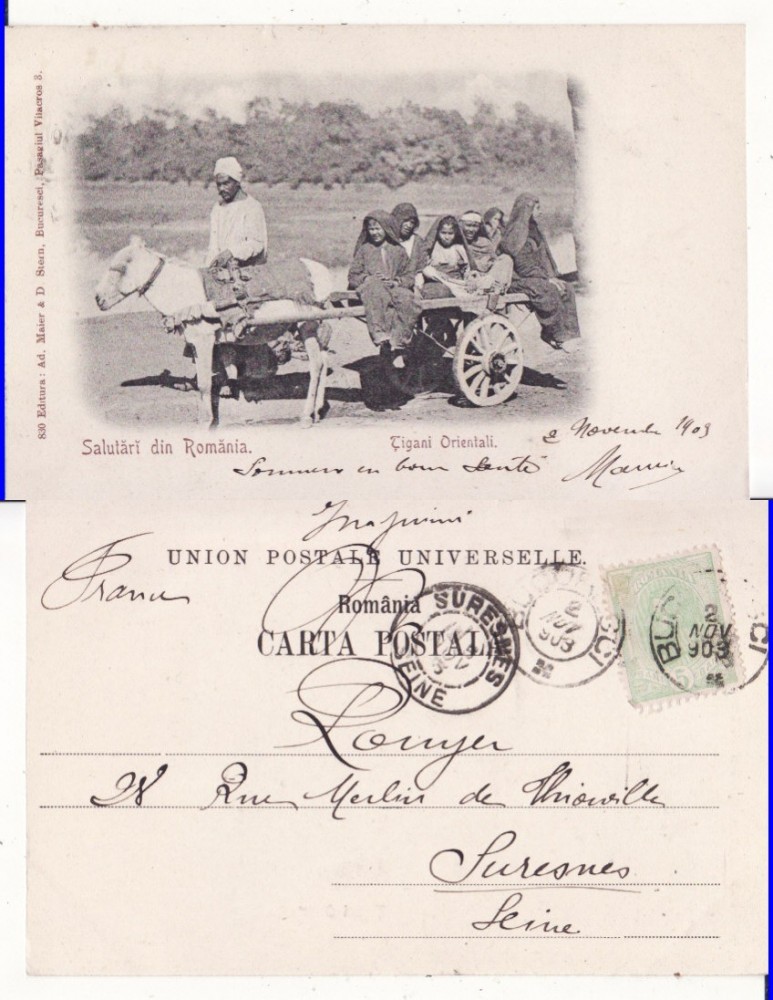 830 Editura: Ad. Maier & D. Stern, Bucuresci, Pasagiul Vilacros 3.
Salutări din România.
Ţigani Orientali.
2 Novembre 1903
en bonne Santé
UNION POSTALE UNIVERSELLE.
France
România
CARTA POSTALĂ
SURESNES
SEINE
2
NOV
903
ROMANIA
5
BUC
2
NOV
903
CI
Rouyer
28 Rue Merlin de Thionville
Suresnes
Seine